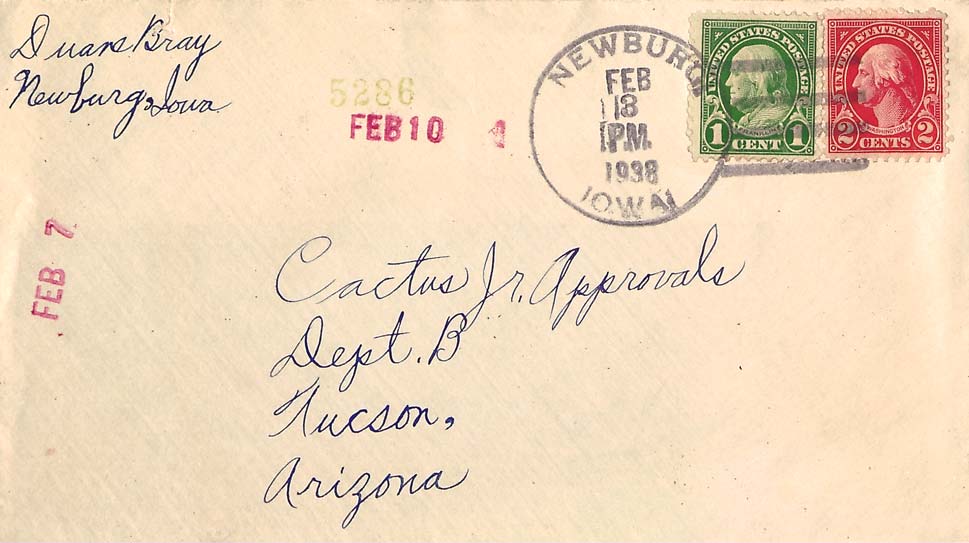 Duane Bray
Newburg, Iowa
5286
FEB 10 1
FEB 7
NEWBURG
FEB
8
PM.
1938
IOWA
UNITED STATES POSTAGE
FRANKLIN
1 CENT 1
UNITED STATES POSTAGE
WASHINGTON
2 CENTS 2
Cactus Jr. Approvals
Dept. B
Tucson,
Arizona